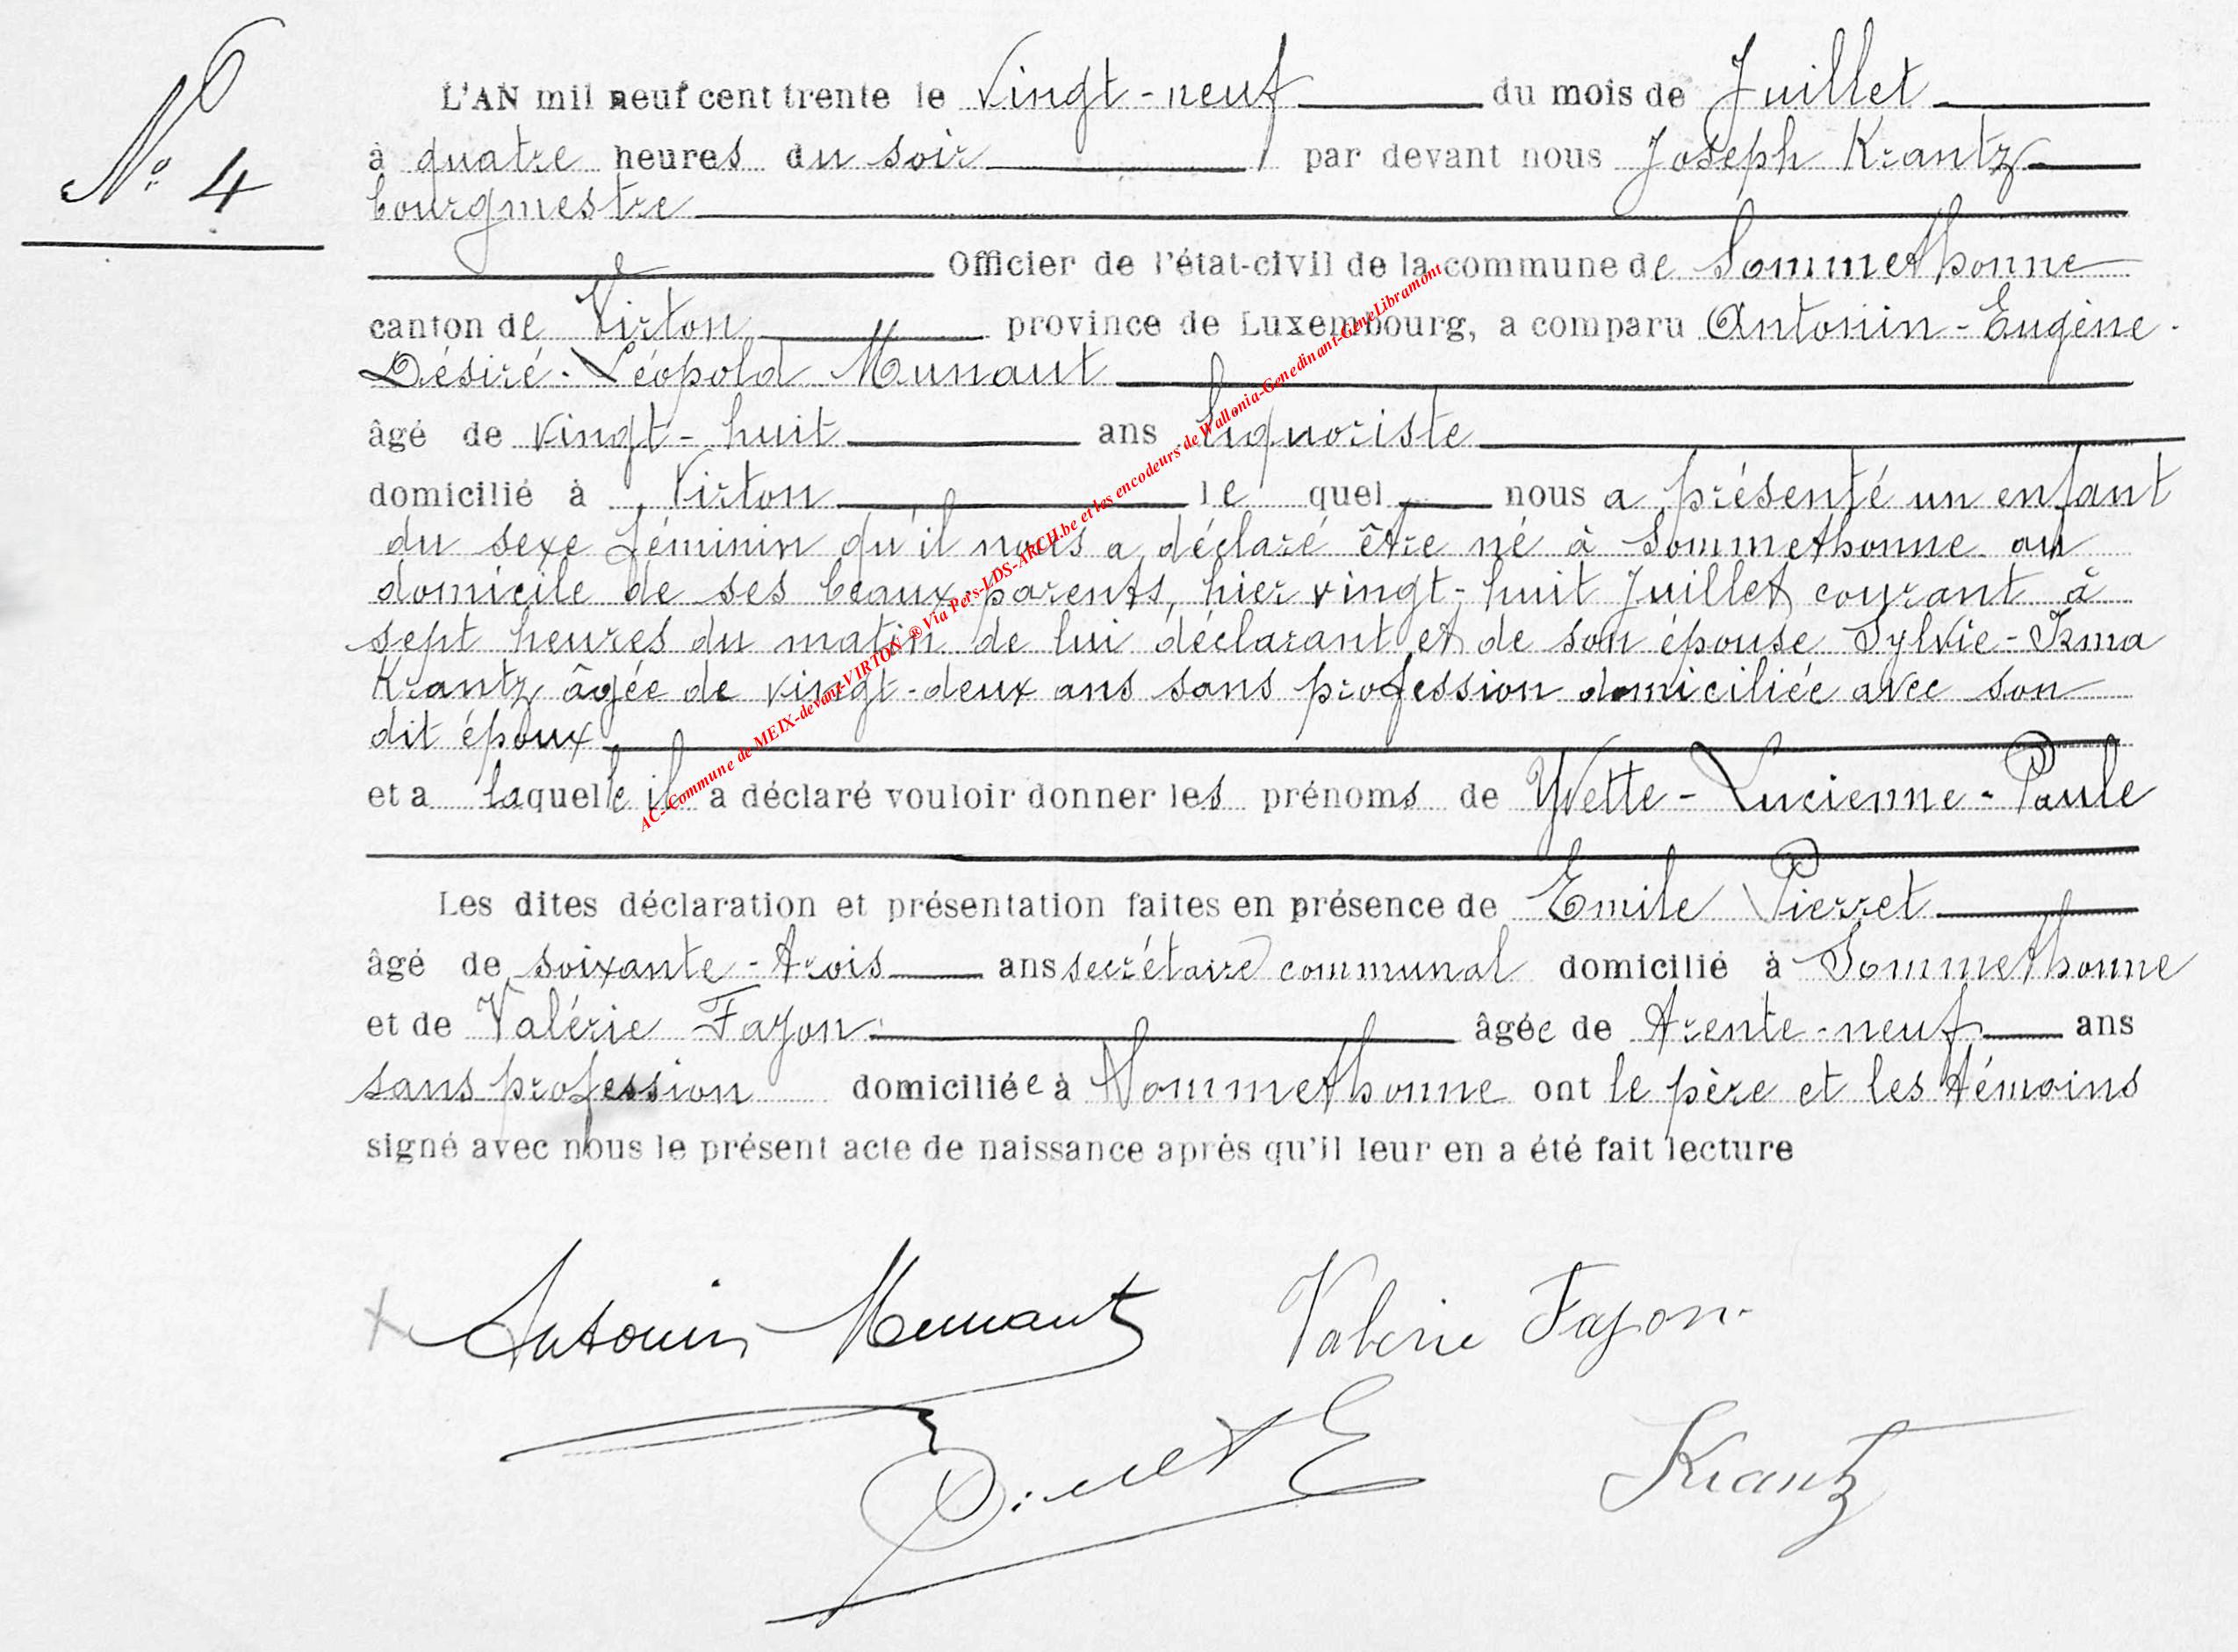 Nº 4
L'AN mil neuf cent trente le vingt-neuf du mois de Juillet
à quatre heures du soir par devant nous Joseph Krantz
bourgmestre
Officier de l'état-civil de la commune de Sommethonne
canton de Virton province de Luxembourg, a comparu Antonin-Eugène-
Désiré-Léopold Munaut
âgé de vingt-huit ans liquoriste
domicilié à Virton le quel nous a présenté un enfant
du sexe féminin qu'il nous a déclaré être né à Sommethonne au
domicile de ses beaux-parents, hier vingt-huit Juillet courant à
sept heures du matin de lui déclarant et de son épouse Sylvie-Irma
Krantz âgée de vingt-deux ans sans profession domiciliée avec son
dit époux
et a laquelle il a déclaré vouloir donner les prénoms de Yvette-Lucienne-Paule
Les dites déclaration et présentation faites en présence de Emile Pierret
âgé de soixante-trois ans secrétaire communal domicilié à Sommethonne
et de Valérie Fayon âgée de trente-neuf ans
sans profession domiciliée à Sommethonne ont le père et les témoins
signé avec nous le présent acte de naissance après qu'il leur en a été fait lecture
Antonin Munaut Valérie Fayon
Pierret E Krantz
AC-Commune de MEIX-devant-VIRTON ® Via Pers-LDS-ARCH.be et les encodeurs de Wallonia-Genedinant-GeneLibramont